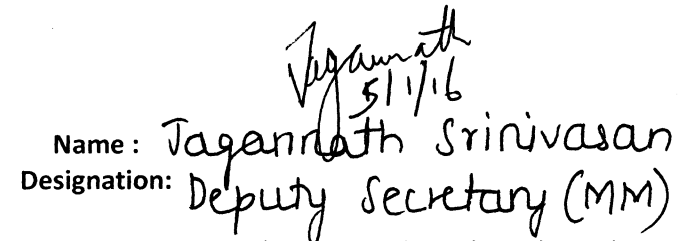 Jagannath
5/1/16
Name : Jagannath Srinivasan
Designation: Deputy Secretary (MM)